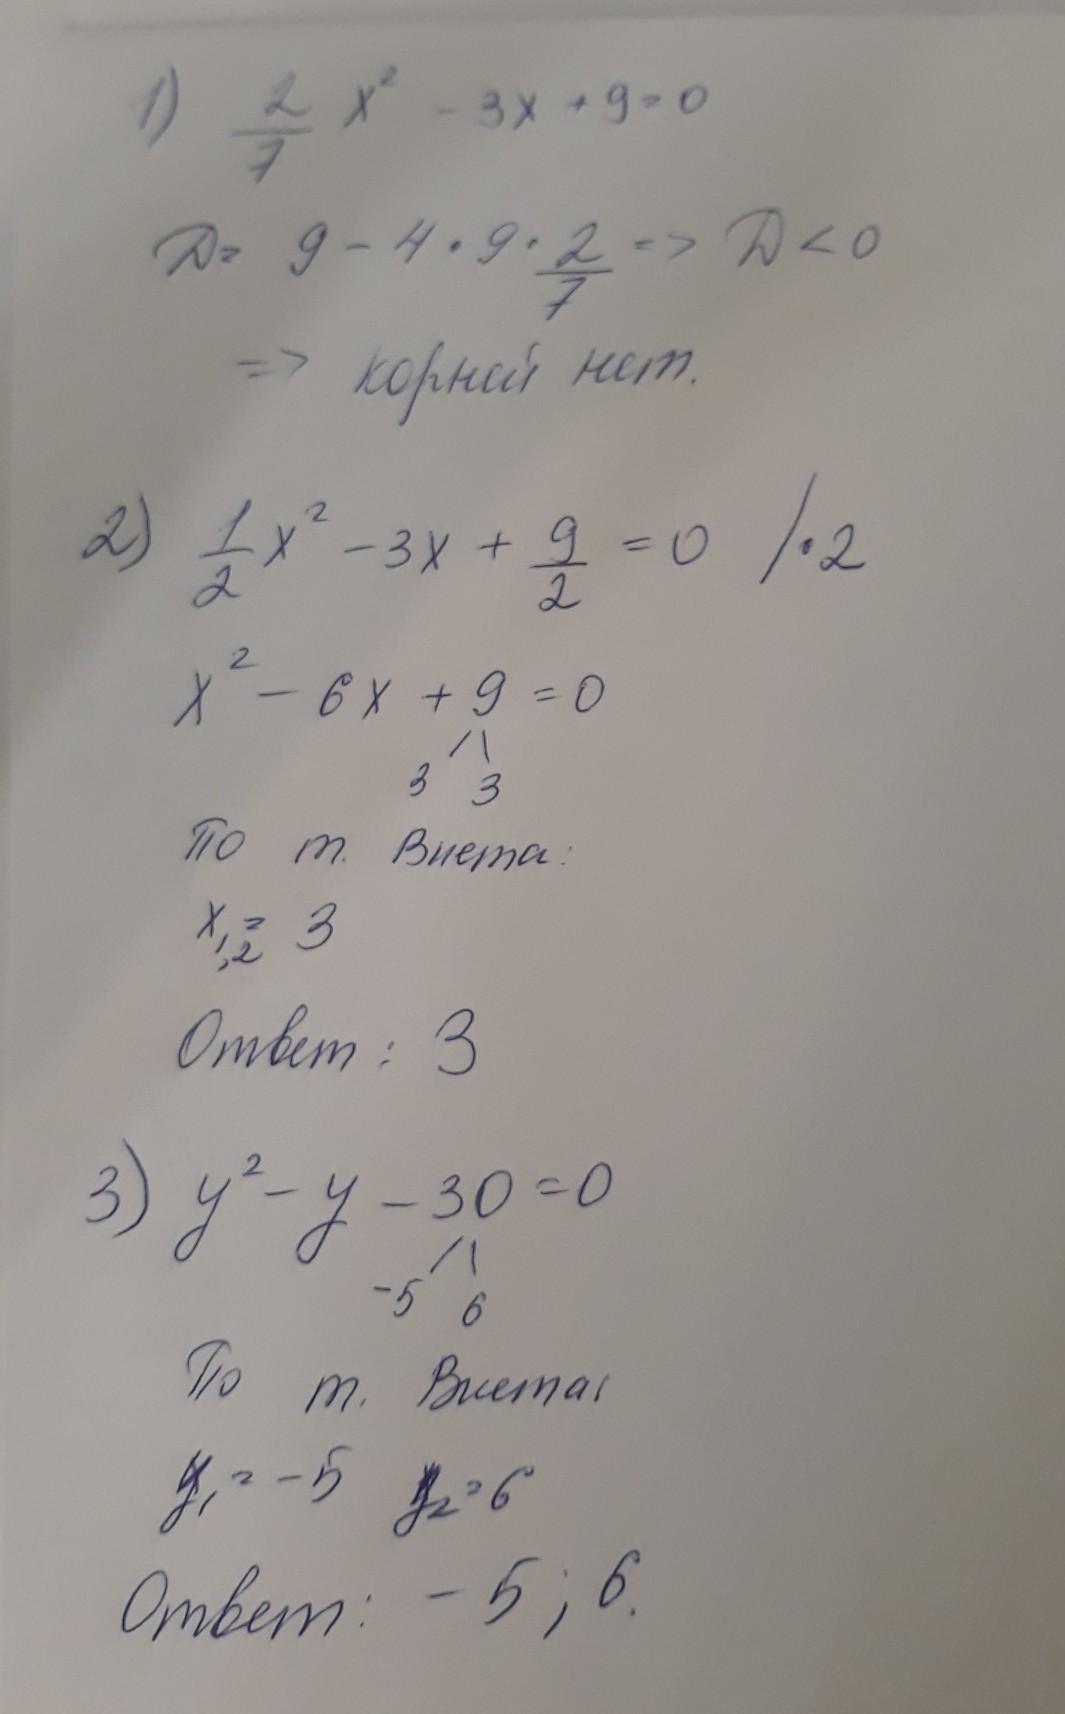 1) 2/7 x² - 3x + 9 = 0
D = 9 - 4 · 9 · 2/7 => D < 0
=> корней нет.
2) 1/2 x² - 3x + 9/2 = 0 /·2
x² - 6x + 9 = 0
3 3
По т. Виета:
x₁,₂ = 3
Ответ: 3
3) y² - y - 30 = 0
-5 6
По т. Виета:
y₁ = -5 y₂ = 6
Ответ: -5; 6.